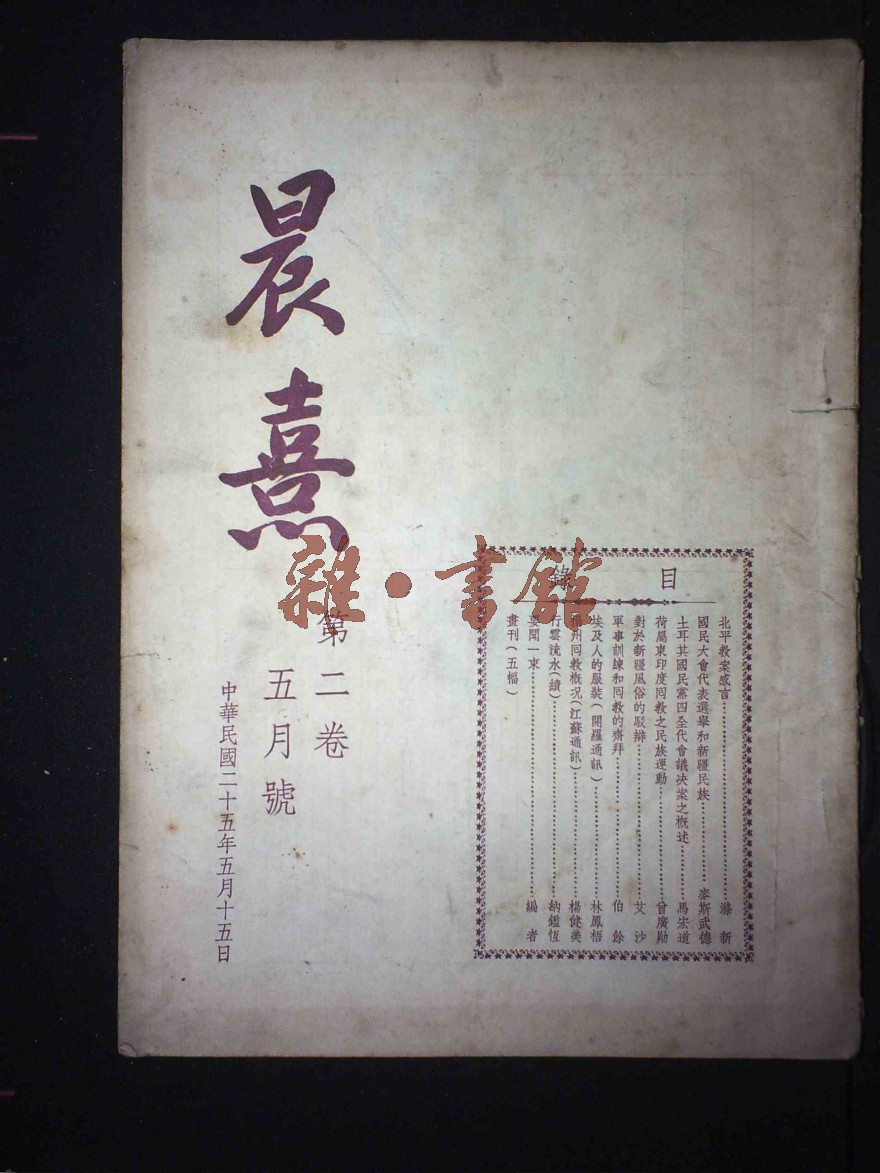 晨熹
第二卷
五月號
中華民國二十五年五月十五日
雜·書館
目錄
北平教案感言……滌新
國民大會代表選舉和新疆民族……麥斯武德
土耳其國民黨四全代會議決案之概述……馬宏道
荷屬東印度回教之民族運動……曾廣勛
對於新疆風俗的駁辯……艾沙
軍事訓練和回教的齋拜……伯餘
埃及人的服裝(開羅通訊)……林鳳梧
州回教概況(江蘇通訊)……楊健美
行雲流水(續)……納鑑恆
要聞一束……編者
畫刊(五幅)